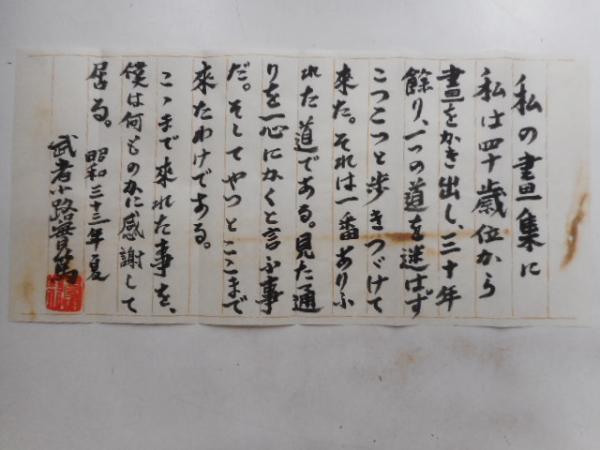 私の畫集に
私は四十歳位から
畫をかき出し、三十年
餘り、一つの道を迷はず
こつこつと歩きつゞけて
来た。それは一番ありふ
れた道である。見た通
りを一心にかくと言ふ事
だ。そしてやつとここまで
来たわけである。
こゝまで来れた事を、
僕は何ものかに感謝して
居る。
昭和三十三年夏
武者小路實篤